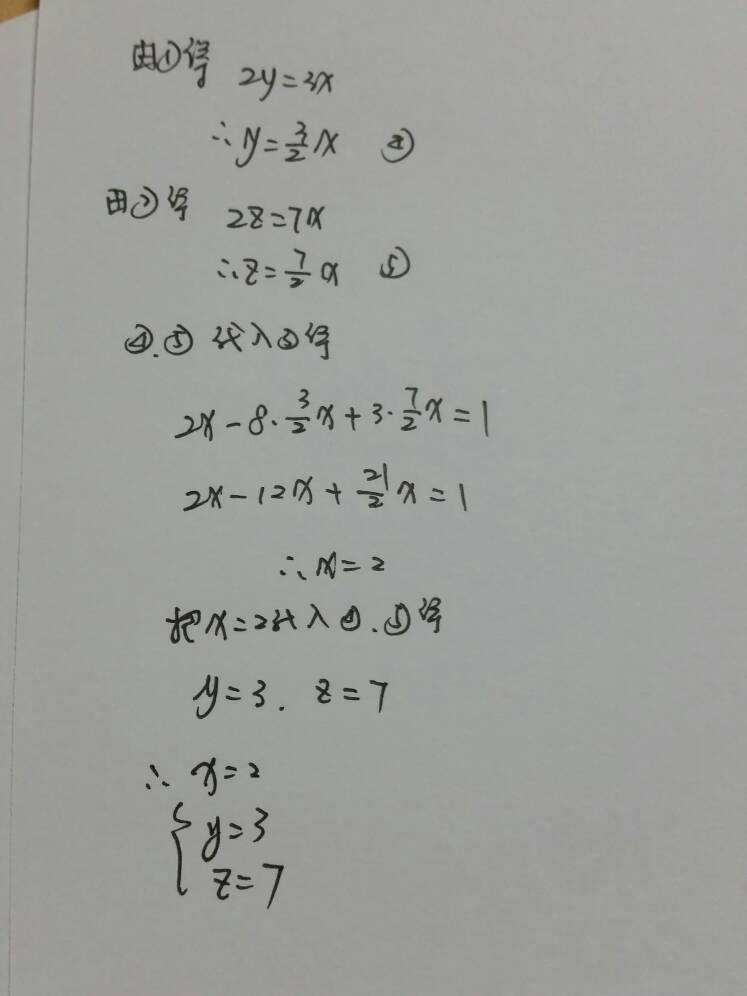 由①得 2y=3x
∴y=3/2x ④
由②得 2z=7x
∴z=7/2x ⑤
④.⑤代入③得
2x-8·3/2x+3·7/2x=1
2x-12x+21/2x=1
∴x=2
把x=2代入④.⑤得
y=3. z=7
∴ x=2
{y=3
z=7